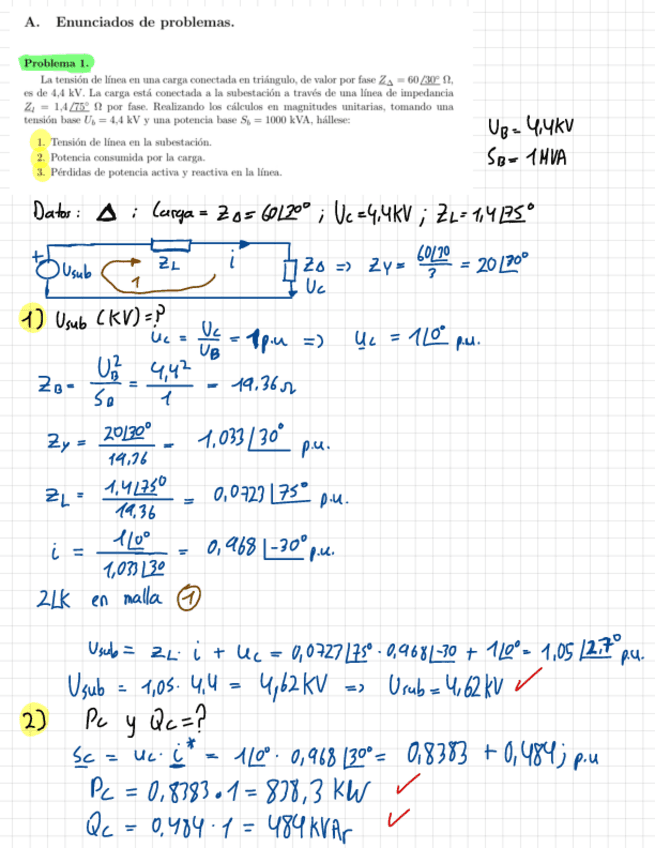 A. Enunciados de problemas.
Problema 1.
La tensión de línea en una carga conectada en triángulo, de valor por fase Z_Δ = 60/30° Ω,
es de 4,4 kV. La carga está conectada a la subestación a través de una línea de impedancia
Z_l = 1,4/75° Ω por fase. Realizando los cálculos en magnitudes unitarias, tomando una
tensión base U_b = 4,4 kV y una potencia base S_b = 1000 kVA, hállese:
1. Tensión de línea en la subestación.
2. Potencia consumida por la carga.
3. Pérdidas de potencia activa y reactiva en la línea.
U_B = 4,4 KV
S_B = 1 MVA
Datos: Δ ; Carga = Z_Δ = 60/30° ; U_C = 4,4 KV ; Z_L = 1,4/75°
+ Usub Z_L i 1 Z_Δ => Z_Y = 60/30 / 3 = 20/30°
U_C
1) Usub (KV) = ?
u_c = U_C / U_B = 1 p.u => u_c = 1/0° p.u.
Z_B = U_B² / S_B = 4,4² / 1 = 19,36 Ω
Z_Y = 20/30° / 19,36 = 1,033/30° p.u.
Z_L = 1,4/75° / 19,36 = 0,0723/75° p.u.
i = 1/0° / 1,033/30 = 0,968/-30° p.u.
2LK en malla 1
Usub = Z_L · i + u_c = 0,0727/75° · 0,968/-30 + 1/0° = 1,05/2,7° p.u.
Usub = 1,05 · 4,4 = 4,62 KV => Usub = 4,62 KV ✓
2) Pc y Qc = ?
Sc = u_c · i* = 1/0° · 0,968/30° = 0,8383 + 0,484j p.u
Pc = 0,8383 · 1 = 838,3 KW ✓
Qc = 0,484 · 1 = 484 KVAr ✓